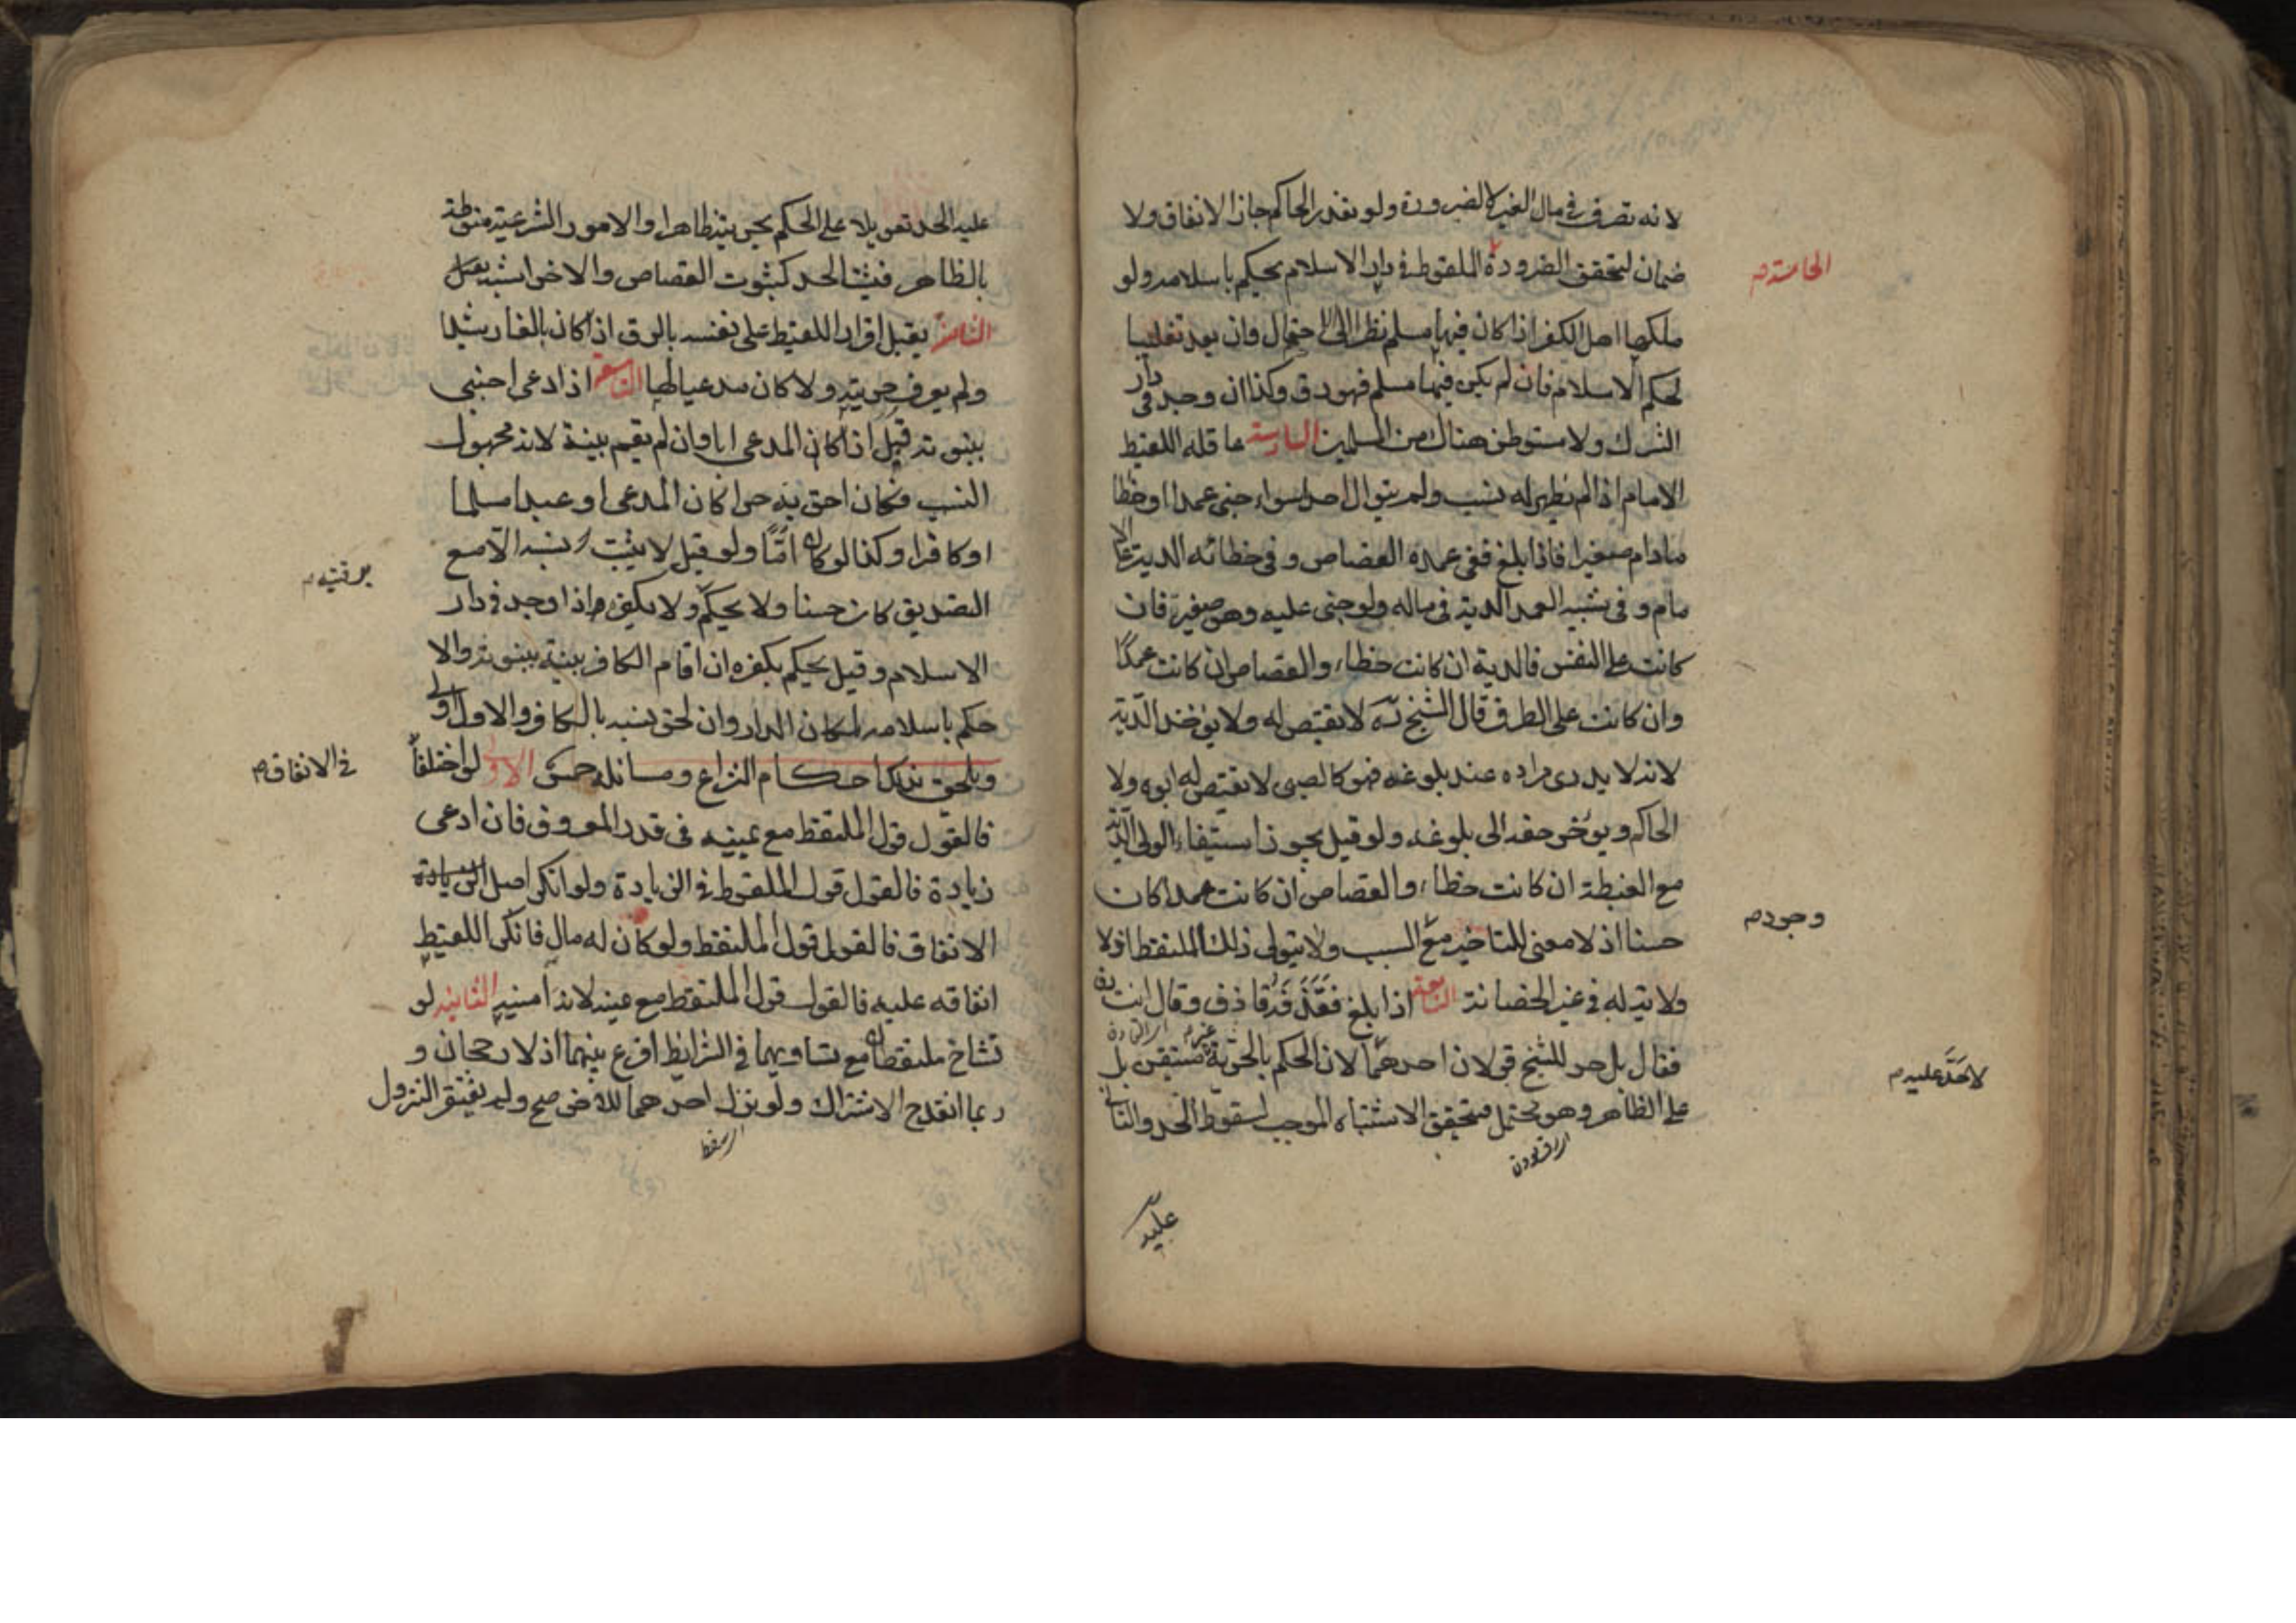 لانه تصرف فى مال الغير لا لضرورة ولو تعذر الحاكم جاز الانفاق ولا
ضمان لتحقق الضرورة الملقوط فى دار الاسلام يحكم باسلامه ولو
الخامسة
ملكها اهل الكفر اذا كان فيها مسلم نظرا الى الاحتمال وان بعد تغليبا
لحكم الاسلام فان لم يكن فيها مسلم فهو رق وكذا ان وجد فى دار
الشرك ولا مستوطن هناك من المسلمين السادسة عاقلة اللقيط
الامام اذا لم يظهر له نسب ولم يتوال احدا سواء جنى عمدا او خطا
مادام صغيرا فاذا بلغ ففى عمده القصاص وفى خطائه الدية على الا
مام وفى شبيه العمد الدية فى ماله ولو جنى عليه وهو صغير فان
كانت على النفس فالدية ان كانت خطاء والقصاص ان كانت عمدًا
وان كانت على الطرف قال الشيخ ره لا يقتص له ولا يؤخذ الدية
لانه لا يدرى مراده عند بلوغه فهو كالصبى لا يقتص له ابوه ولا
الحاكم ويؤخر حقه الى بلوغه ولو قيل بجواز استيفاء الولى الدية
مع الغبطة ان كانت خطاء والقصاص ان كانت عمدا كان
وجود
حسنا اذ لا معنى للتاخير مع السبب ولا يتولى ذلك الملتقط اذ لا
ولاية له فى غير الحضانة السابعة اذا بلغ فقذفه قاذف وقال انت رق
فقال بل حر للشيخ قولان احدهما لان الحكم بالحرية غير متيقن بل
لا حَدَّ عليه
على الظاهر وهو محتمل فيتحقق الاشتباه الموجب لسقوط الحد والثانى
عليه
عليه الحد تعويلا على الحكم بحريته ظاهرا والامور الشرعية منوطة
بالظاهر فيثبت الحد كثبوت القصاص والاخر اشبه
الثامنة يقبل اقرار اللقيط على نفسه بالرق اذا كان بالغا رشيدا
ولم يعرف حريته ولا كان مدعيا لها التاسعة اذا ادعى اجنبى
بنوته قبل اذا كان المدعى ابا وان لم يقم بينة لانه مجهول
النسب فكان احق به حرا كان المدعى او عبدا مسلما
او كافرا وكذا لو كان امًّا ولو قيل لا يثبت نسبه الا مع
التصديق كان حسنا ولا يحكم ولا بكفره اذا وجد فى دار
برقيته
الاسلام وقيل يحكم بكفره ان اقام الكافر بينة ببنوته والا
حكم باسلامه لمكان الدار وان لحق نسبه بالكافر والاول اولى
ويلحق بذلك احكام النزاع ومسائله خمس الاولى لو اختلفا
فى الانفاق
فالقول قول الملتقط مع يمينه فى قدر المعروف فان ادعى
زيادة فالقول قول الملقوط فى الزيادة ولو انكر اصل
الانفاق فالقول قول الملتقط ولو كان له مال فانكر اللقيط
انفاقه عليه فالقول قول الملتقط مع يمينه لانه امنيه الثانية لو
تشاح ملتقطان مع تساويهما فى الشرايط اقرع بينهما اذ لا رجحان و
ربما انقدح الاشتراك ولو نزل احدهما للآخر صح ولم يفتقر النزول